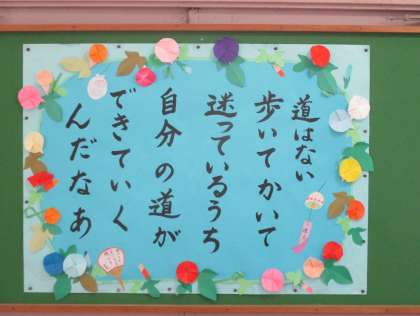 道はない
歩いてかいて
迷っているうち
自分の道が
できていく
んだなあ